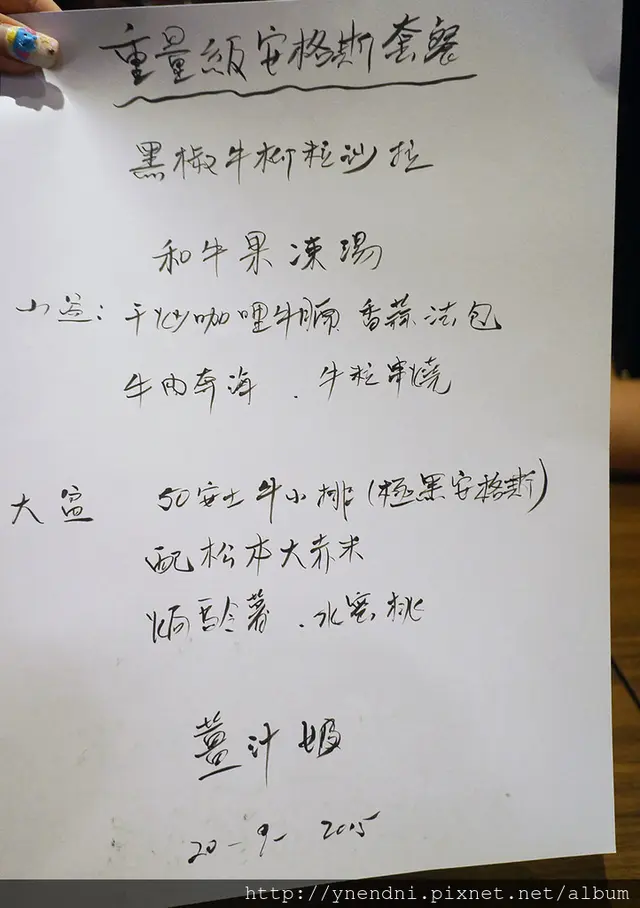 重量級安格斯套餐
黑椒牛柳粒沙拉
和牛果凍湯
小盆: 干炒咖哩牛腩 香蒜法包
牛肉奔海 . 牛粒串燒
大盆 50安士牛小排(極黑安格斯)
配松本大赤米
焗薯 . 水蜜桃
薑汁
20-9-2015
http://ynendni.pixnet.net/album